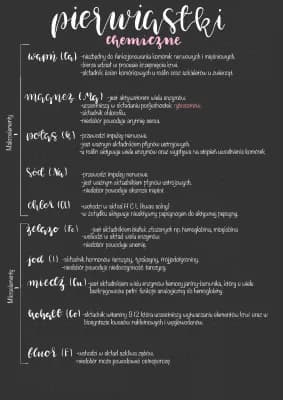 pierwiastki
chemiczne
wapń (Ca) -niezbędny do funkcjonowania komórek nerwowych i mięśniowych,
-bierze udział w procesie krzepnięcia krwi,
-składnik ścian komórkowych u roślin oraz szkieletów u zwierząt.
magnez (Mg) -jest aktywatorem wielu enzymów,
-uczestniczy w składaniu podjednostek rybosomów,
-składnik chlorofilu,
-niedobór powoduje arytmię serca.
potas (K) -przewodzi impulsy nerwowe,
-jest ważnym składnikiem płynów ustrojowych,
-u roślin aktywuje wiele enzymów oraz wpływa na stopień uwodnienia komórek.
Makroelementy
sód (Na) -przewodzi impulsy nerwowe,
-jest ważnym składnikiem płynów ustrojowych,
-niedobór powoduje skurcze mięśni.
chlor (Cl) -wchodzi w skład H C L (kwas solny)
-w żołądku aktywuje nieaktywny pepsynogen do aktywnej pepsyny.
żelazo (Fe) -jest składnikiem białek złożonych np. hemoglobina, mioglobina
-wchodzi w skład wielu enzymów
-niedobór powoduje anemię.
jod (I) -składnik hormonów tarczycy, tyroksyny, trójjodotyroniny.
-niedobór powoduje niedoczynność tarczycy.
miedź (Cu) -jest składnikiem wielu enzymów hemocyjaniny-barwnika, który u wielu
bezkręgowców pełni funkcje analogiczną do hemoglobiny.
Mikroelementy
kobalt (Co) -składnik witaminy B12, która uczestniczy wytwarzaniu elementów krwi oraz w
biosyntezie kwasów nukleinowych i węglowodanów.
fluor (F) -wchodzi w skład szkliwa zębów,
-niedobór może powodować osteoporozę